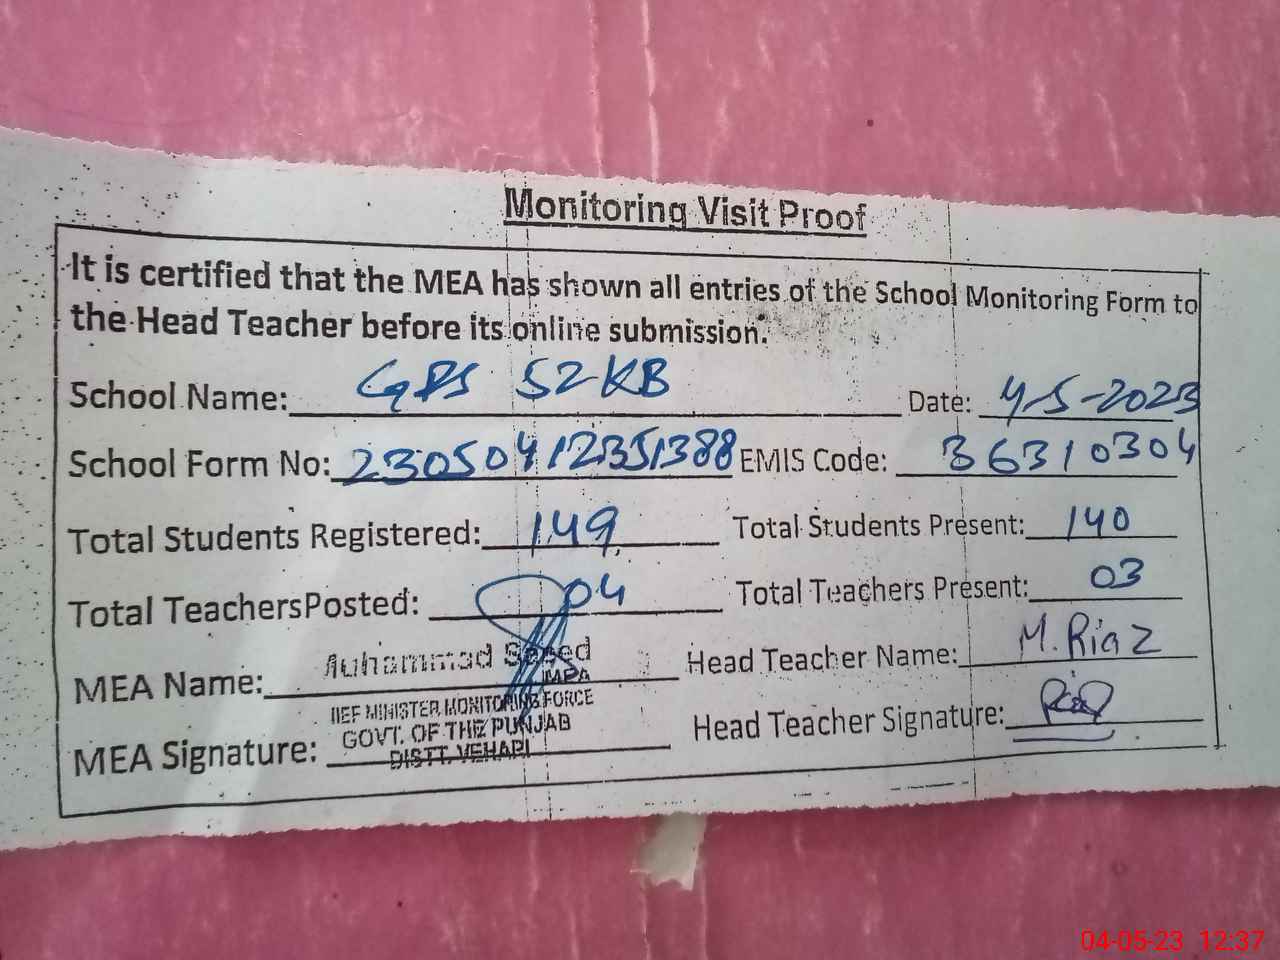 Monitoring Visit Proof
It is certified that the MEA has shown all entries of the School Monitoring Form to
the Head Teacher before its online submission.
School Name: GPS 52 KB Date: 4-5-2023
School Form No: 23050412351388 EMIS Code: 36310304
Total Students Registered: 149 Total Students Present: 140
Total TeachersPosted: 04 Total Teachers Present: 03
MEA Name: Muhammad Saeed Head Teacher Name: M. Riaz
MINISTER, MONITORING FORCE
GOVT. OF THE PUNJAB
DISTT. VEHARI
MEA Signature: Head Teacher Signature:
04-05-23 12:37